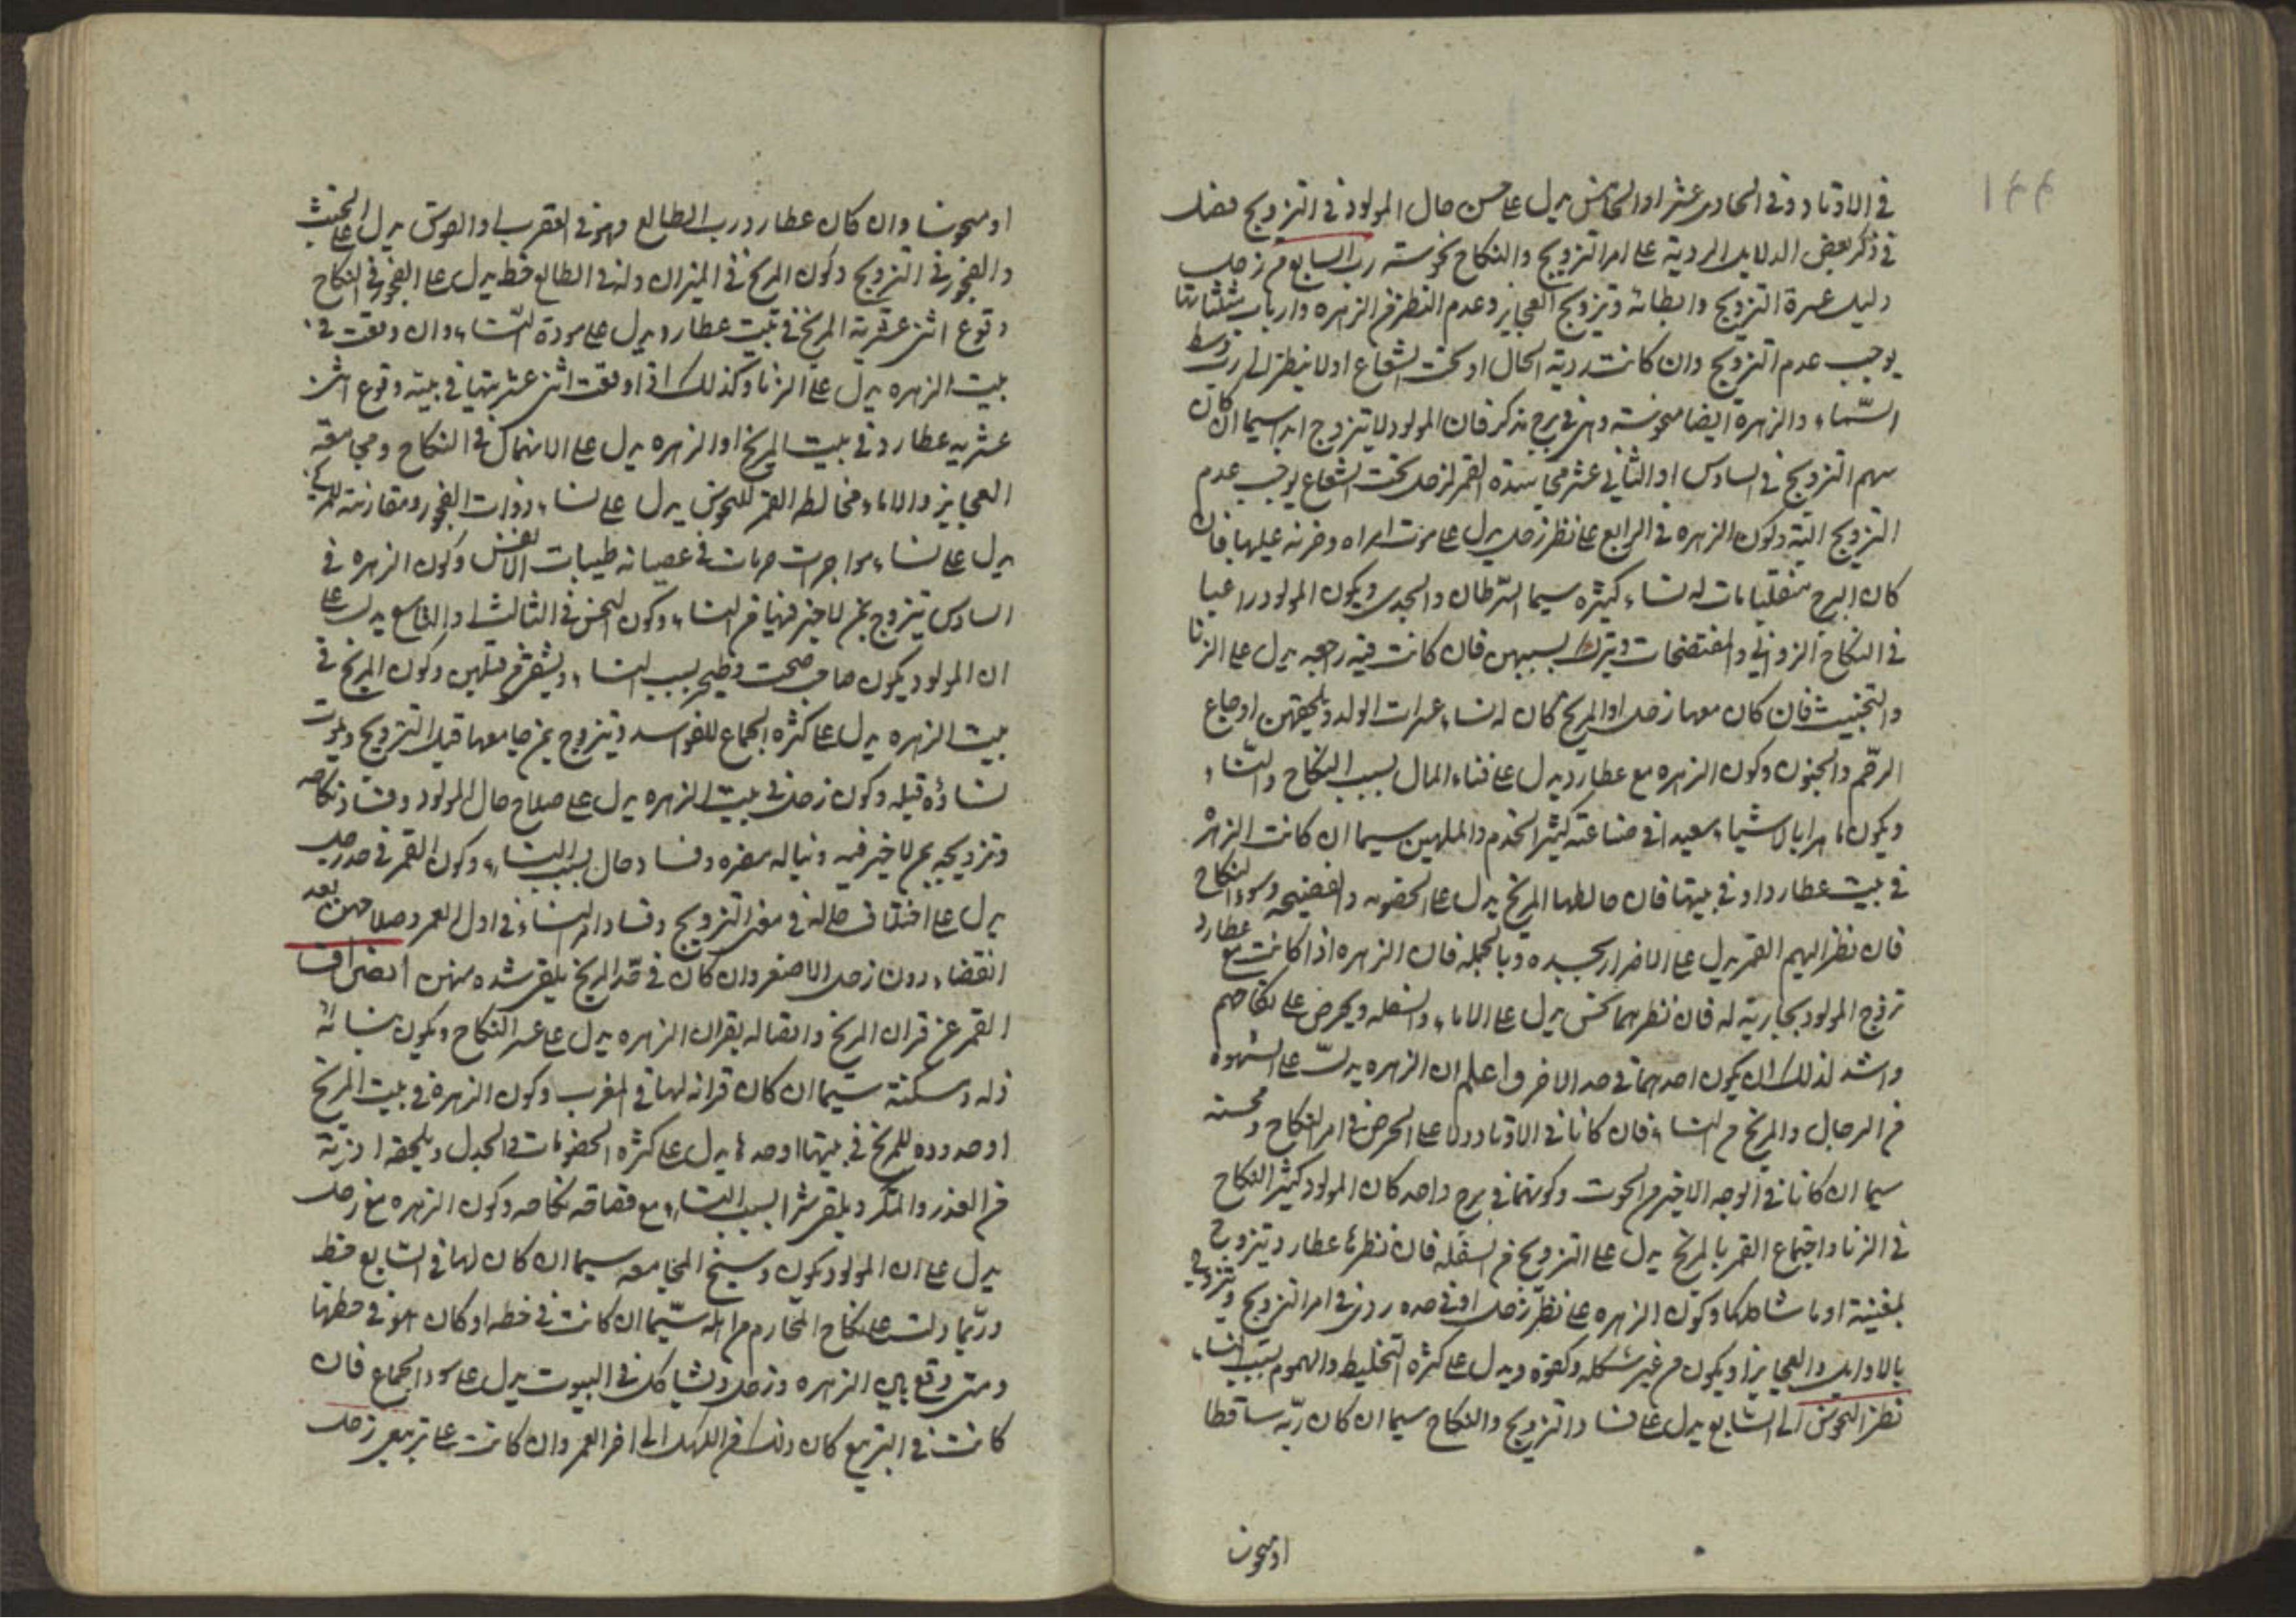 ١٤٤
في الاوتاد وفي الحادى عشر او الخامس يدل على حسن حال المولود في التزويج فصل
في ذكر بعض الدلايل الردية على امر التزويج والنكاح نحوسة رب السابع من زحل
دليل عسرة التزويج وابطائه وتزويج العجايز وعدم النظر من الزهره وارباب مثلثاتها
يوجب عدم التزويج وان كانت ردية الحال او تحت الشعاع اولا ينظر الى رب وسط
السّماء والزهرة ايضا منحوسة وهى في برج مذكر فان المولود لا يتزوج ابدا سيما ان كان
سهم التزويج في السادس او الثاني عشر مجاسدة القمر لزحل تحت الشعاع يوجب عدم
التزويج البتة وكون الزهره في الرابع على نظر زحل يدل على موت امراه وحزنه عليها فان
كان البرج منقلبا مات له نساء كثيره سيما السّرطان والجدى ويكون المولود راغبا
في النكاح الزواني والمفتضحات وتترك بسببهن فان كانت فيه راجعه يدل على الزنا
والتخنيث فان كان معها زحل او المريخ كان له نساء عسرات الولد ويلحقهن اوجاع
الرحم والجنون وكون الزهره مع عطارد يدل على فناء المال بسبب النكاح والنساء
ويكون ماهرا بالاشياء سعيدا في صناعته كثير الخدم والملهين سيما ان كانت الزهرة
في بيت عطارد او في بيتها فان خالطها المريخ يدل على الخصومه والفضيحه وسوء النكاح
فان نظر اليهم القمر يدل على الاضرار بجسده وبالجمله فان الزهره اذا كانت مع عطارد
تزوج المولود بجارية له فان نظرهما نحس يدل على الاماء والسفله ويحرض على نكاحهم
واشد لذلك ان يكون احدهما في حد الاخر واعلم ان الزهره يدلّ على الشهوه
من الرجال والمريخ من النساء فان كانا في الاوتاد دلا على الحرص في امر النكاح ومحبته
سيما ان كانا في الوجه الاخير من الحوت وكونهما في برج واحد كان المولود كثير النكاح
في الزنا واجتماع القمر بالمريخ يدل على التزويج من السفله فان نظرها عطارد يتزوج
بمغنية او ما شاكلها وكون الزهره على نظر زحل او في حده ردى في امر التزويج ويتزوج
بالارامل والعجايز او يكون من غير شكله وكفوه ويدل على كثره التخليط والهموم بسبب النساء
نظر النحوس الى السّابع يدل على فساد التزويج والنكاح سيما ان كان ربّه ساقطا
او منحوسا
او منحوسا وان كان عطارد رب الطالع وهو في العقرب او القوس يدل على الخبث
والفجور في التزويج وكون المريخ في الميزان وله في الطالع حظ يدل على الفجور في النكاح
وقوع اثنى عشرية المريخ في بيت عطارد يدل على مودة النّساء وان وقعت في
بيت الزهره يدل على الزنا وكذلك اذا وقعت اثنى عشريتها في بيته وقوع اثنى
عشريه عطارد في بيت المريخ او الزهره يدل على الانهماك في النكاح ومجامعة
العجايز والاماء مخالطه القمر للنحوس يدل على نساء ذوات الفجور ومقارنته للمريخ
يدل على نساء مواجرات طيبات الانفس وكون الزهره في
السادس تتزوج بمن لا خير فيها من النساء وكون النحس في الثالث او التاسع يدل على
ان المولود يكون بسبب النساء وكون المريخ في
بيت الزهره يدل على كثره الجماع للفواسد ويتزوج بمن جامعها قبل التزويج ويموت
نساؤه قبله وكون زحل في بيت الزهره يدل على صلاح حال المولود وفساد نكاحه
وتزويجه بمن لا خير فيه ويناله مضره وفساد حال بسبب النساء وكون القمر في حد زحل
يدل على اختلاف حاله في معنى التزويج وفساد امر النساء في اول العمر وصلاحهن بعد
انقضاء دون زحل الاصغر وان كان في حد المريخ يلقى شده منهن انصراف
القمر عن قران المريخ واتصاله بقران الزهره يدل على عسر النكاح ويكون نسائه
ذله ومسكنة سيّما ان كان قرانه لها في المغرب وكون الزهره في بيت المريخ
او حدوده للمريخ في بيتها او حدها يدل على كثره الخصومات والجدل ويلحقه اذية
من الغدر والمكر ويلقى شرا بسبب النساء مع نكاحه وكون الزهره مع زحل
يدل على ان المولود يكون وسخ المجامعه سيما ان كان لها في السّابع حظ
وربّما دلت على نكاح المحارم من اهله سيّما ان كانت في حظه او كان هو في حظها
ومتى وقع بين الزهره وزحل تشاكل في البيوت يدل على سوء الجماع فان
كانت في التربيع كان ذلك من الكهل الى اخر العمر وان كانت على تربيعى زحل